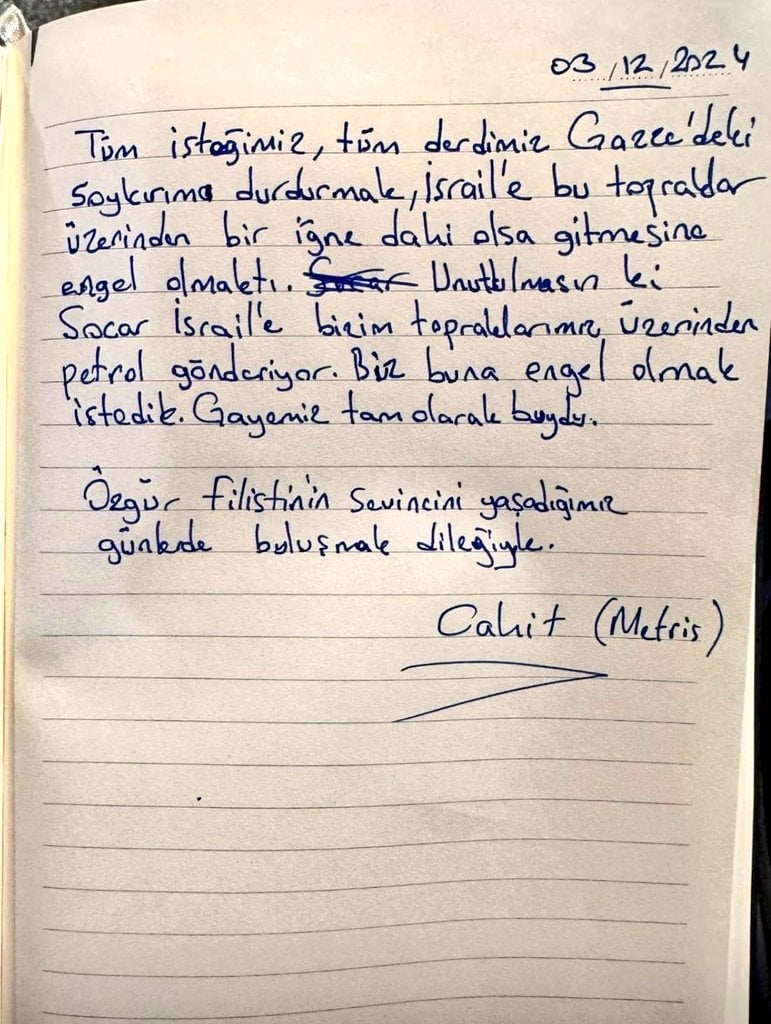 03/12/2024
Tüm isteğimiz, tüm derdimiz Gazze'deki
Soykırımı durdurmak, İsrail'e bu topraklar
üzerinden bir iğne dahi olsa gitmesine
engel olmaktı. Socar Unutulmasın ki
Socar İsrail'e bizim topraklarımız üzerinden
petrol gönderiyor. Biz buna engel olmak
istedik. Gayemiz tam olarak buydu.
Özgür Filistin'in sevincini yaşadığımız
günlerde buluşmak dileğiyle.
Cahit (Metris)